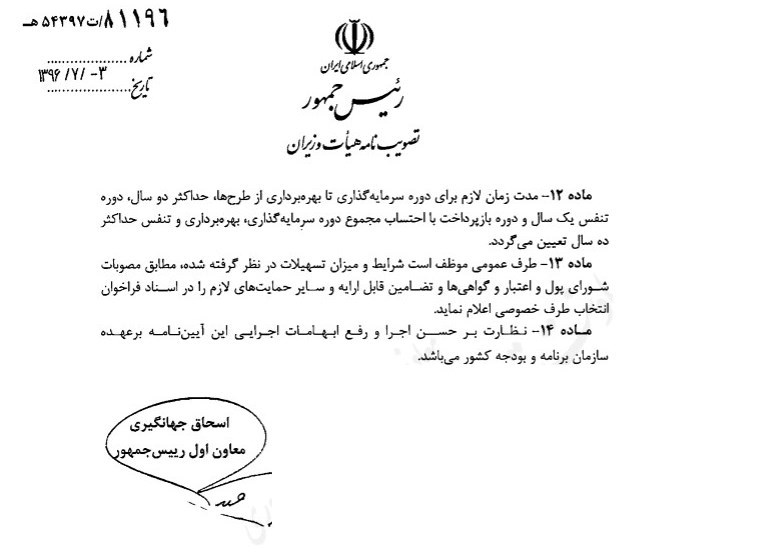 ۸۱۱۹۶/ت۵۴۳۹۷هـ
شماره
۱۳۹۶/۷/-۳
تاریخ
جمهوری اسلامی ایران
رئیس جمهور
تصویب نامه هیأت وزیران
ماده ۱۲- مدت زمان لازم برای دوره سرمایه‌گذاری تا بهره‌برداری از طرح‌ها، حداکثر دو سال، دوره
تنفس یک سال و دوره بازپرداخت با احتساب مجموع دوره سرمایه‌گذاری، بهره‌برداری و تنفس حداکثر
ده سال تعیین می‌گردد.
ماده ۱۳- طرف عمومی موظف است شرایط و میزان تسهیلات در نظر گرفته شده، مطابق مصوبات
شورای پول و اعتبار و گواهی‌ها و تضامین قابل ارایه و سایر حمایت‌های لازم را در اسناد فراخوان
انتخاب طرف خصوصی اعلام نماید.
ماده ۱۴- نظارت بر حسن اجرا و رفع ابهامات اجرایی این آیین‌نامه برعهده
سازمان برنامه و بودجه کشور می‌باشد.
اسحاق جهانگیری
معاون اول رییس‌جمهور